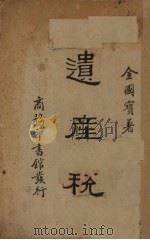 金國寶著
遺產稅
商務印書館發行